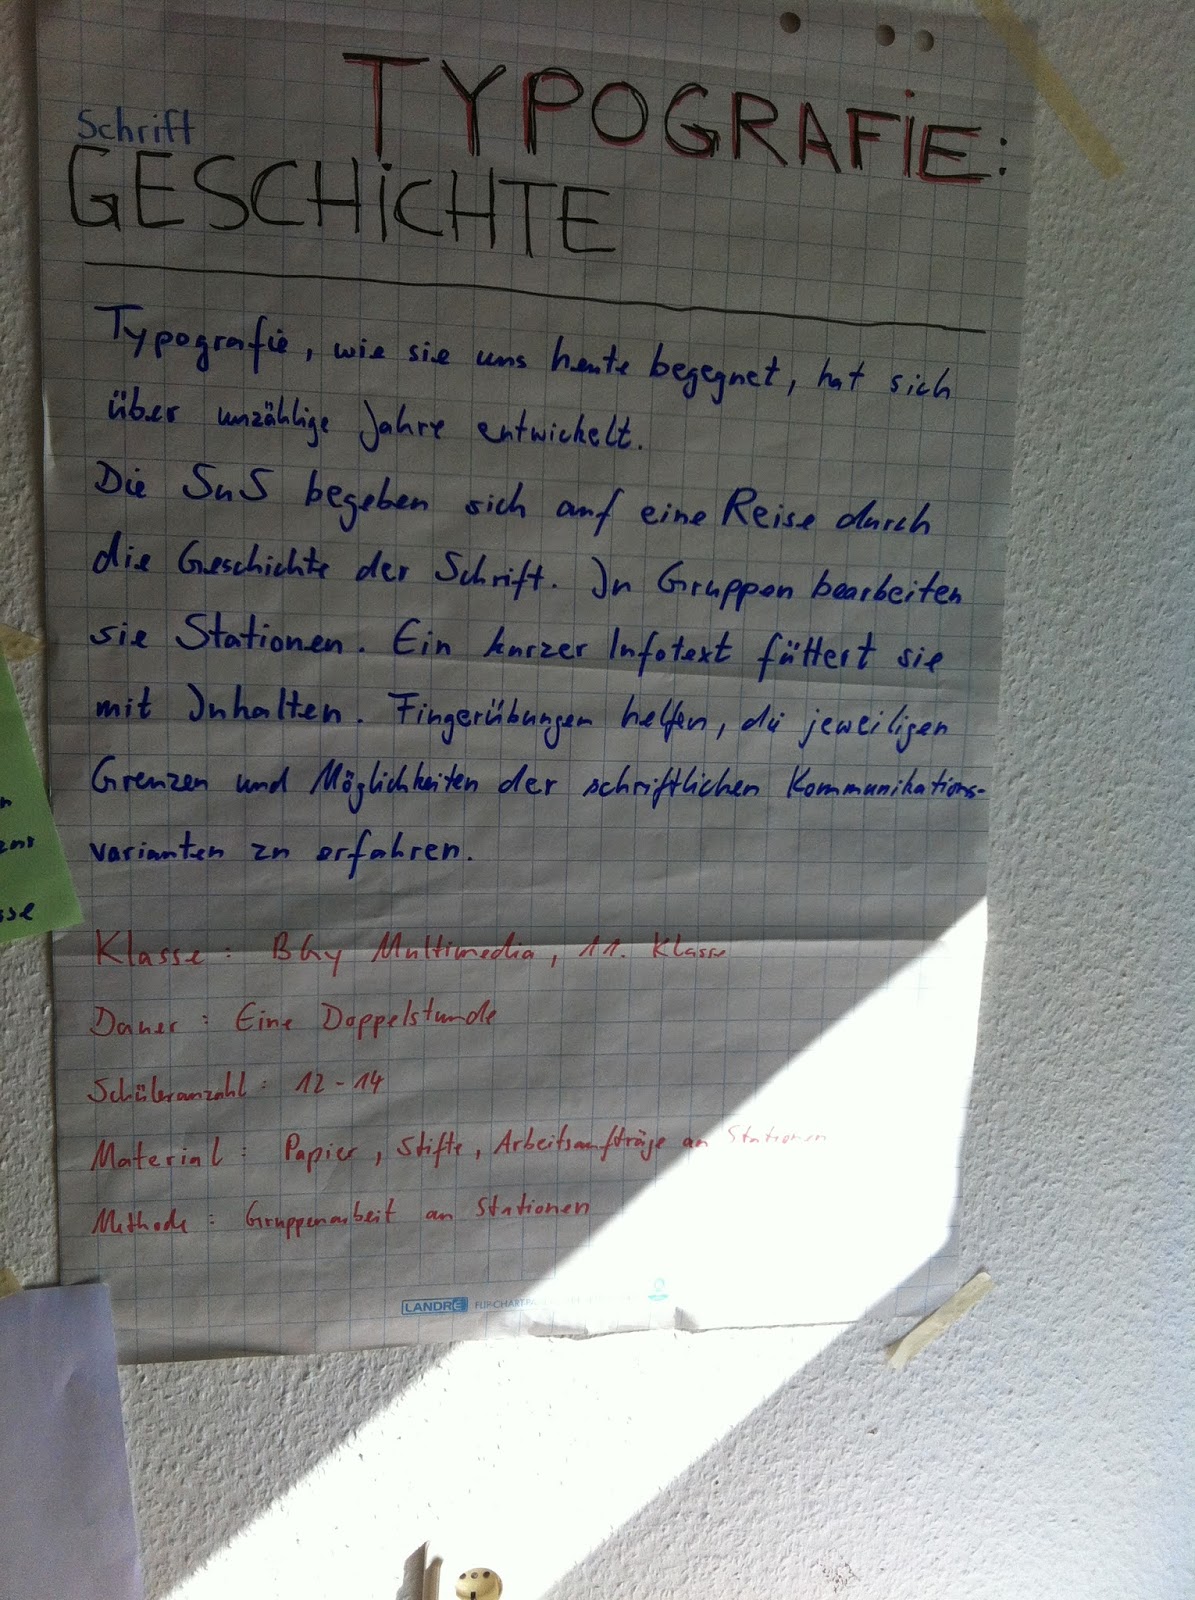 TYPOGRAFiE:
Schrift
GESCHiCHTE
Typografie, wie sie uns heute begegnet, hat sich
über unzählige Jahre entwickelt.
Die SuS begeben sich auf eine Reise durch
die Geschichte der Schrift. In Gruppen bearbeiten
sie Stationen. Ein kurzer Infotext füttert sie
mit Inhalten. Fingerübungen helfen, die jeweiligen
Grenzen und Möglichkeiten der schriftlichen Kommunikations-
varianten zu erfahren.
Klasse: BGy Multimedia, 11. Klasse
Dauer: Eine Doppelstunde
Schüleranzahl: 12-14
Material: Papier, Stifte, Arbeitsaufträge an Stationen
Methode: Gruppenarbeit an Stationen
LANDRÉ FLIPCHART